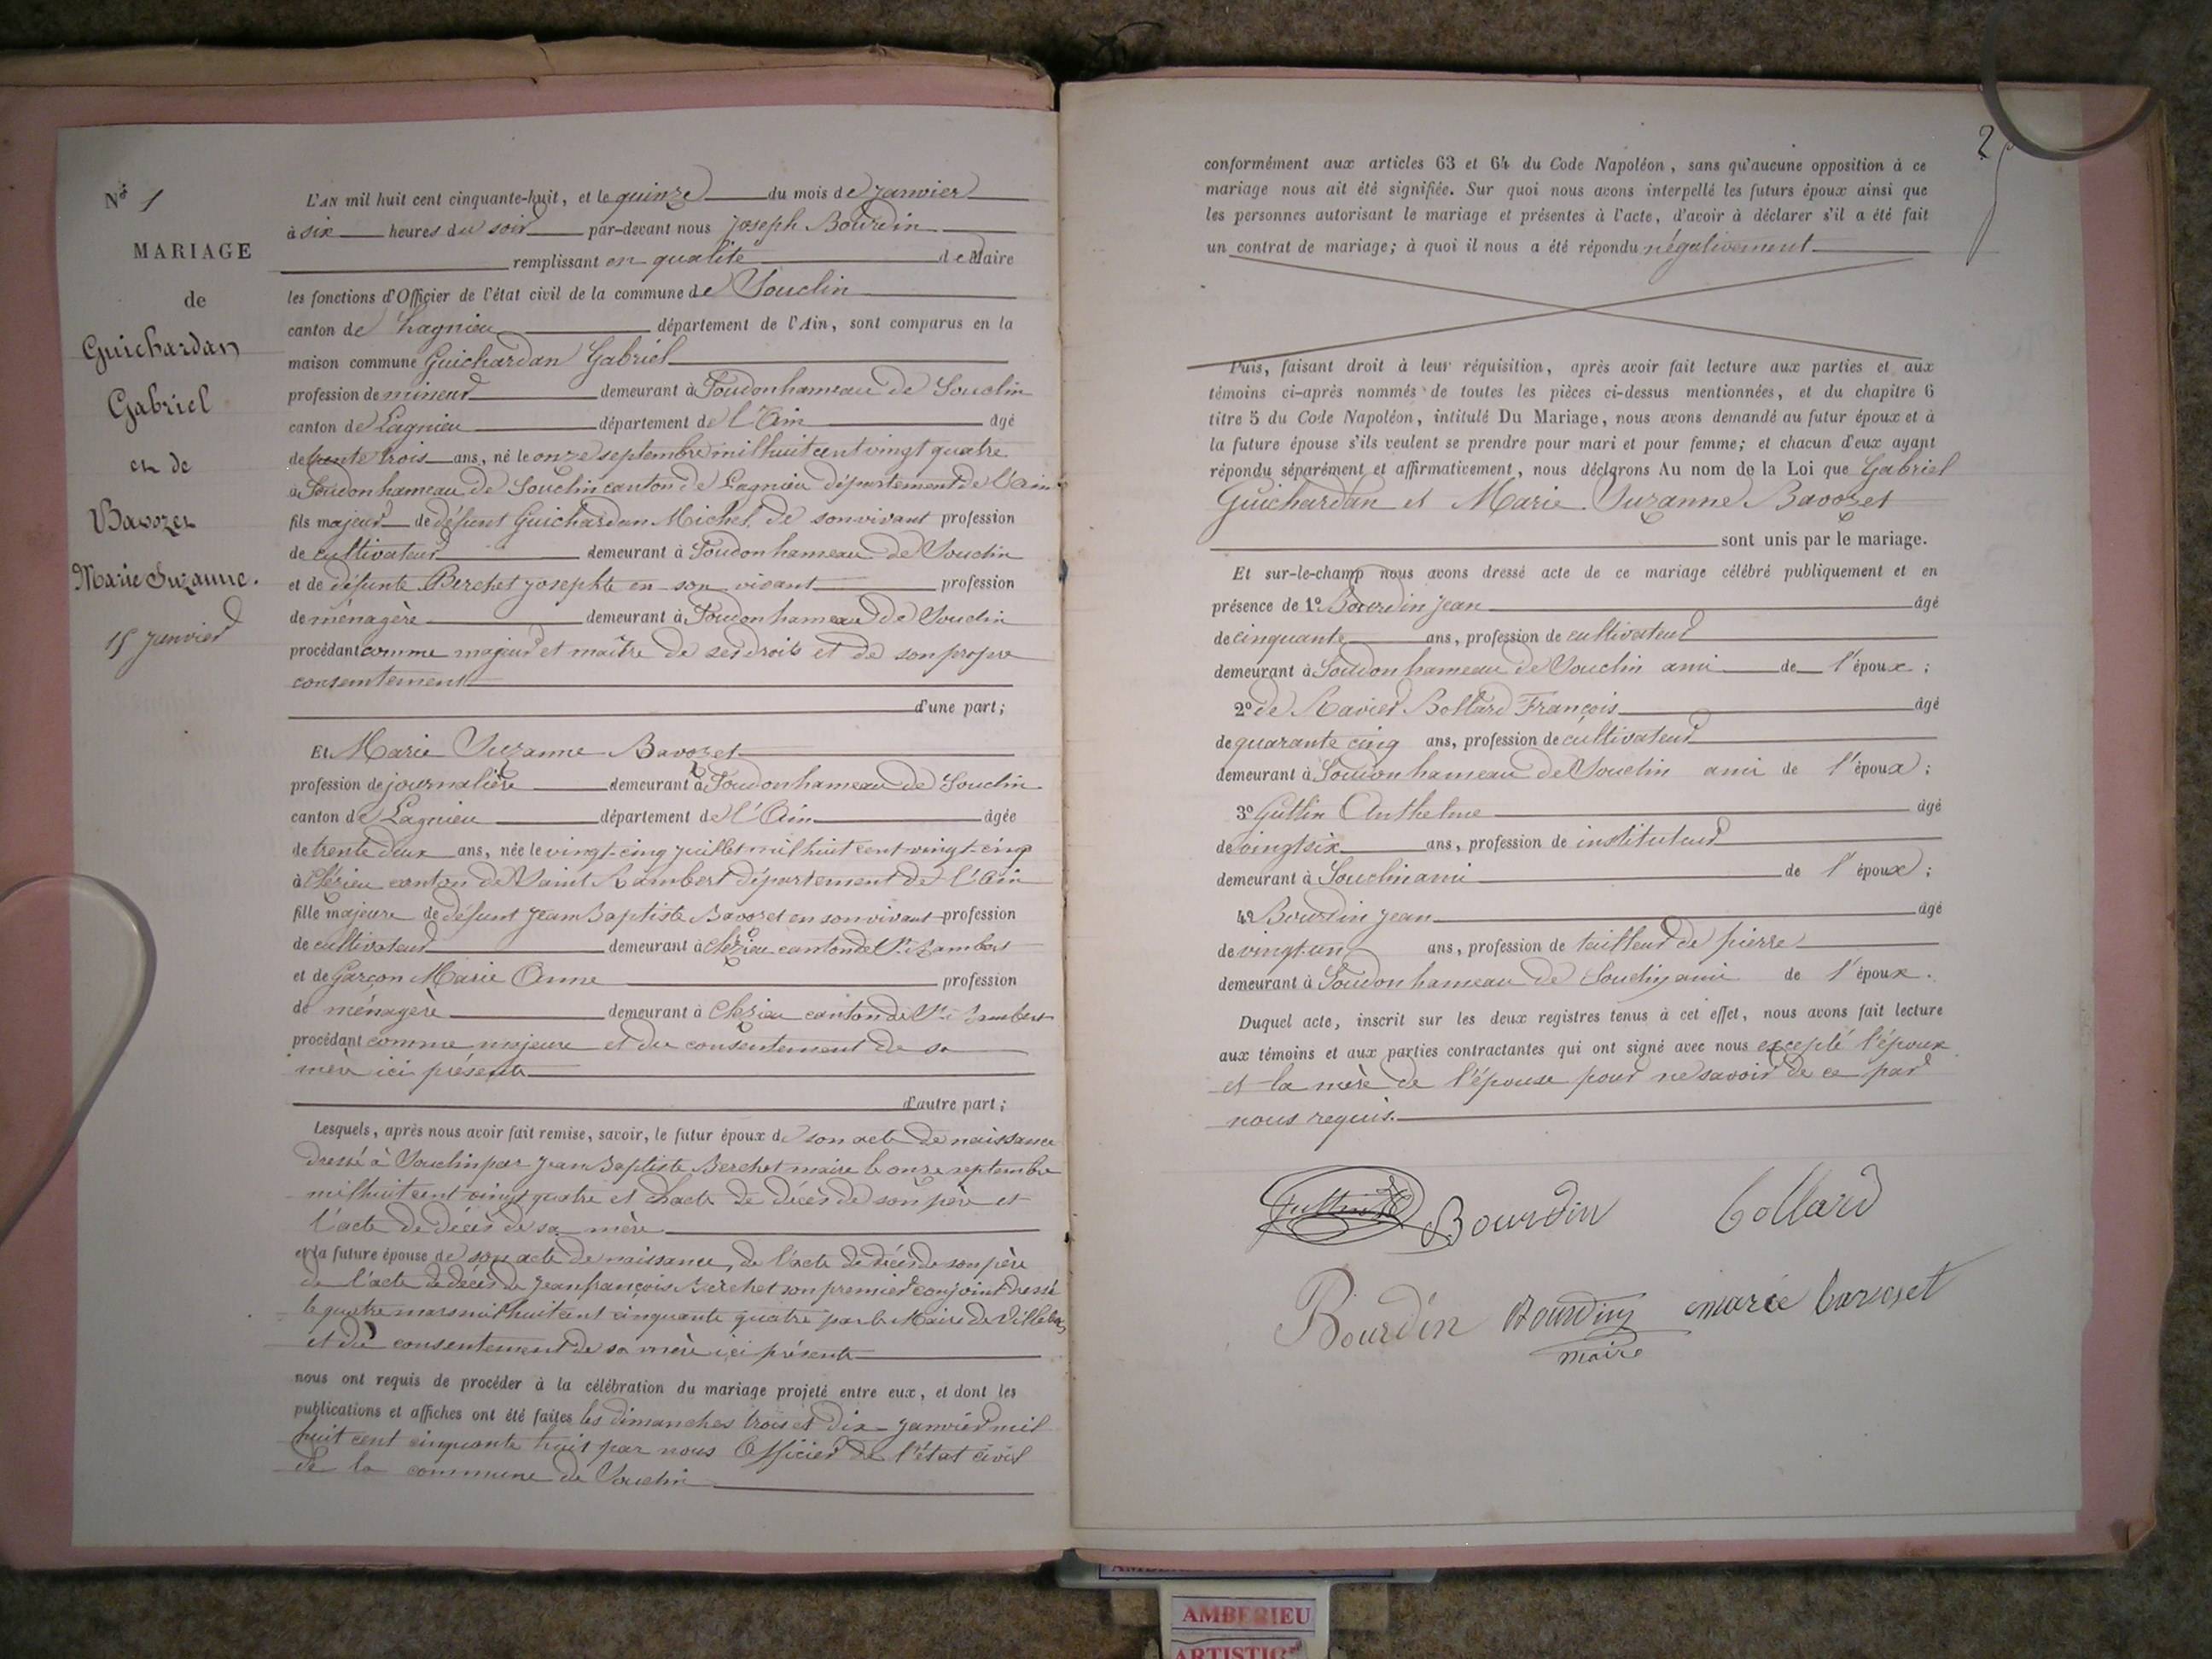 N° 1
MARIAGE
de
Guichardan
Gabriel
et de
Bavozet
Marie Suzanne.
15 janvier
L'AN mil huit cent cinquante-huit, et le quinze du mois de janvier
à six heures du soir par-devant nous joseph Bourdin
remplissant en qualité de Maire
les fonctions d'Officier de l'état civil de la commune de Souclin
canton de Lagnieu département de l'Ain, sont comparus en la
maison commune Guichardan Gabriel
profession de mineur demeurant à Soudon hameau de Souclin
canton de Lagnieu département de l'Ain âgé
de trente trois ans, né le onze septembre mil huit cent vingt quatre
à Soudon hameau de Souclin canton de Lagnieu département de l'Ain
fils majeur de défunt Guichardan Michel de son vivant profession
de cultivateur demeurant à Soudon hameau de Souclin
et de défunte Berchet josephte en son vivant profession
de ménagère demeurant à Soudon hameau de Souclin
procédant comme majeur et maître de ses droits et de son propre
consentement
d'une part;
Et Marie Suzanne Bavozet
profession de journalière demeurant à Soudon hameau de Souclin
canton de Lagnieu département de l'Ain âgée
de trente deux ans, née le vingt-cinq juillet mil huit cent vingt-cinq
à Clézieu canton de Saint Rambert département de l'Ain
fille majeure de défunt jean Baptiste Bavozet en son vivant profession
de cultivateur demeurant à Clézieu canton de St Rambert
et de Garçon Marie Anne profession
de ménagère demeurant à Clézieu canton de St Rambert
procédant comme majeure et du consentement de sa
mère ici présente
d'autre part;
Lesquels, après nous avoir fait remise, savoir, le futur époux de son acte de naissance
dressé à Souclin par jean Baptiste Berchet maire le onze septembre
mil huit cent vingt quatre et l'acte de décès de son père et
l'acte de décès de sa mère
et la future épouse de son acte de naissance, de l'acte de décès de son père
de l'acte de décès de jean françois Berchet son premier conjoint dressé
le quatre mars mil huit cent cinquante quatre par le Maire de Villebois
et du consentement de sa mère ici présente
nous ont requis de procéder à la célébration du mariage projeté entre eux, et dont les
publications et affiches ont été faites les dimanches trois et dix janvier mil
huit cent cinquante huit par nous Officier de l'état civil
de la commune de Souclin
2
conformément aux articles 63 et 64 du Code Napoléon, sans qu'aucune opposition à ce
mariage nous ait été signifiée. Sur quoi nous avons interpellé les futurs époux ainsi que
les personnes autorisant le mariage et présentes à l'acte, d'avoir à déclarer s'il a été fait
un contrat de mariage; à quoi il nous a été répondu négativement
Puis, faisant droit à leur réquisition, après avoir fait lecture aux parties et aux
témoins ci-après nommés de toutes les pièces ci-dessus mentionnées, et du chapitre 6
titre 5 du Code Napoléon, intitulé Du Mariage, nous avons demandé au futur époux et à
la future épouse s'ils veulent se prendre pour mari et pour femme; et chacun d'eux ayant
répondu séparément et affirmativement, nous déclarons Au nom de la Loi que Gabriel
Guichardan et Marie Suzanne Bavozet
sont unis par le mariage.
Et sur-le-champ nous avons dressé acte de ce mariage célébré publiquement et en
présence de 1° Bourdin jean âgé
de cinquante ans, profession de cultivateur
demeurant à Soudon hameau de Souclin ami de l'époux;
2° de Ravier Bollard François âgé
de quarante cinq ans, profession de cultivateur
demeurant à Soudon hameau de Souclin ami de l'époux;
3° Guttin Anthelme âgé
de vingt six ans, profession de instituteur
demeurant à Souclin ami de l'époux;
4° Bourdin jean âgé
de vingt-un ans, profession de tailleur de pierre
demeurant à Soudon hameau de Souclin ami de l'époux.
Duquel acte, inscrit sur les deux registres tenus à cet effet, nous avons fait lecture
aux témoins et aux parties contractantes qui ont signé avec nous excepté l'époux
et la mère de l'épouse pour ne savoir de ce par
nous requis.
Guttin Bourdin bollard
Bourdin Bourdin marie bavozet
maire
AMBERIEU
ARTISTIC